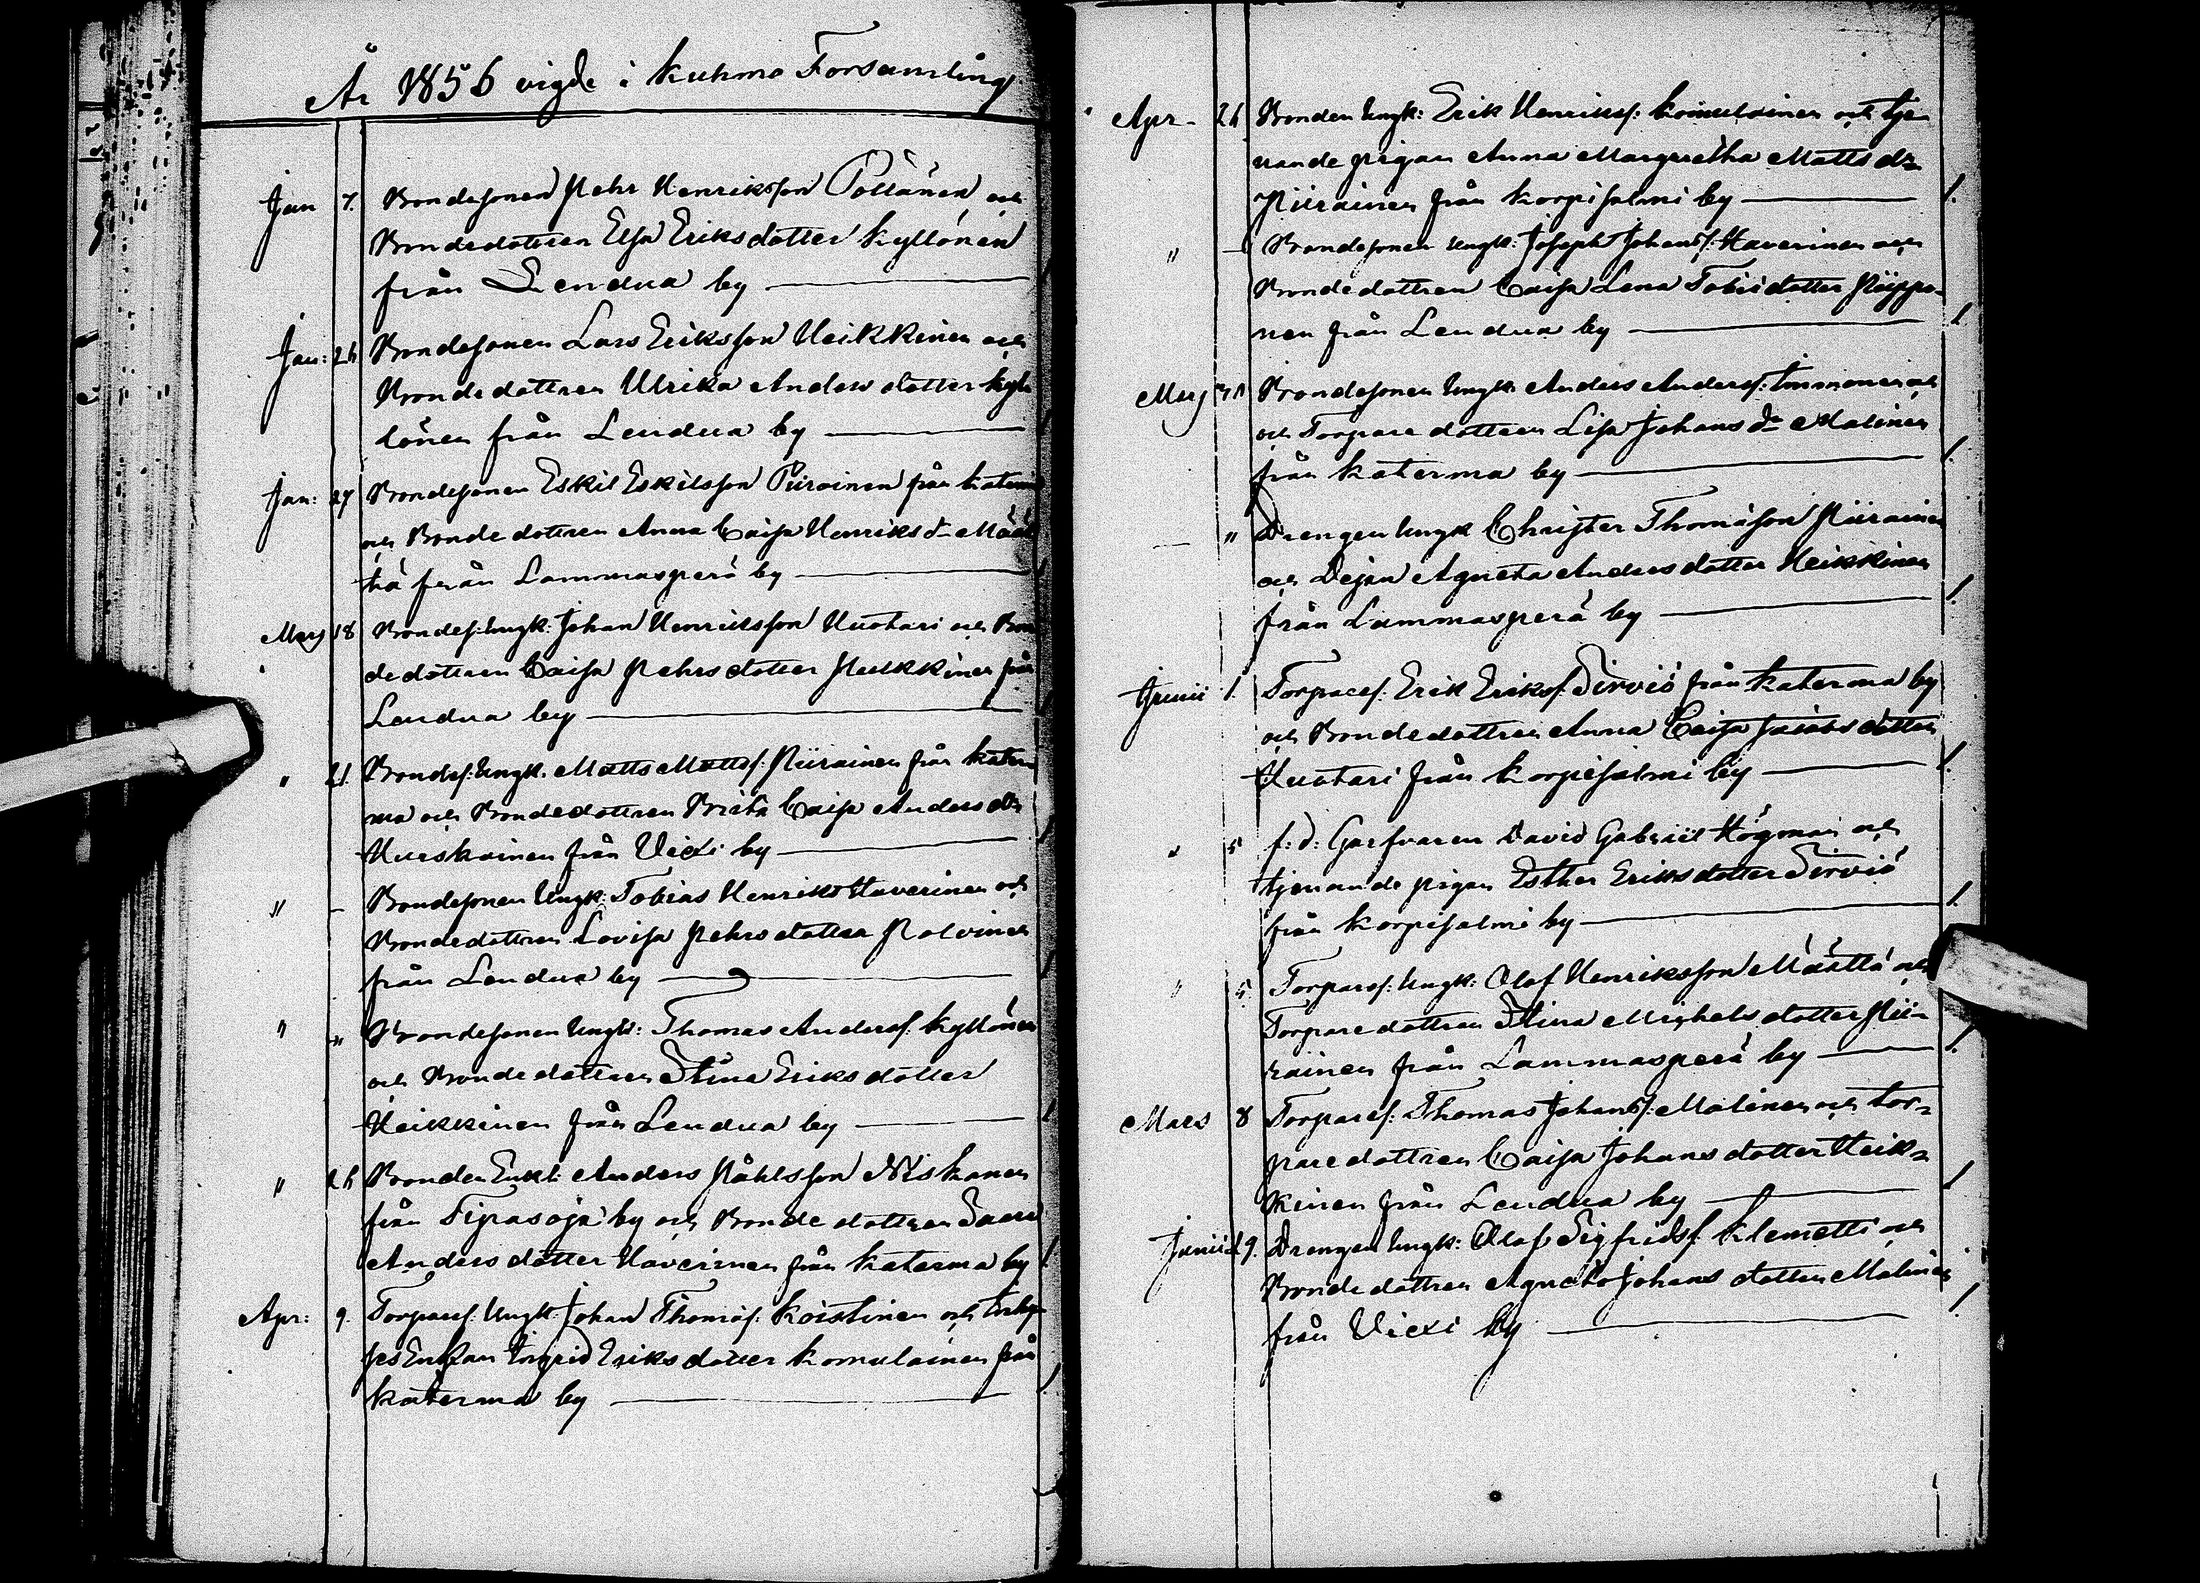 År 1856 vigde i Kuhmo Församling
Jan 7. Bondesonen Pehr Henriksson Pollänen och
Bondedottren Elsa Eriksdotter Kyllönen
från Lendua by
Jan: 26 Bondesonen Lars Eriksson Heikkinen och
Bondedottren Ulrika Andersdotter Kyl-
lönen från Lendua by
Jan: 27 Bondesonen Eskil Eskilsson Piirainen från Katerma
och Bondedottren Anna Caisa Henriksdr Määt
tä från Lammasperä by
Mars 18 Bondes: Ungk: Johan Henriksson Huotari och Bon
dedottren Caisa Pehrsdotter Heikkinen från
Lendua by
" 21. Bondes: Ungk. Matts Mattss. Piirainen från Kater
ma och Bondedottren Brita Caisa Andersdr
Hurskainen från Viexi by
" - Bondesonen Ungk: Tobias Henrikss Haverinen och
Bondedottren Lovisa Pehrsdotter Polvinen
från Lendua by
" " Bondesonen Ungk: Thomas Anderss. Kyllönen
och Bondedottren Stina Eriksdotter
Heikkinen från Lendua by
" 26 Bonden Enkl: Anders Påhlsson Niskanen
från Tipasoja by och Bondedottren Sara
Andersdotter Haverinen från Katerma by 1.
Apr: 9. Torpares. Ungk: Johan Thomass. Koistinen och
Enkan Ingrid Eriksdotter Komulainen från
Katerma by
Apr- 26 Bonden Ungk: Erik Henrikss: Komulainen och tje
nande pigan Anna Margretha Mattsdr
Piirainen från Korpisalmi by 1.
" - Bondesonen Ungk: Joseph Johanss. Haverinen och
Bondedottren Caisa Lena Tobiedotter Ryppö-
nen från Lendua by 1.
Maj Bondesonen Ungk: Anders Anderss. Immonen och
och Torparedottren Lisa Johansdr Malinen
från Katerma by 1.
- " Drengen Ungk Christer Thomasson Piirainen
och Dejan Agneta Andersdotter Heikkinen
från Lammasperä by 1.
Junii 1. Torpares: Erik Erikss. Sirviö från Katerma by
och Bondedottren Anna Caisa Jacobsdotter
Huotari från Korpisalmi by 1.
" 5 f: d: Garfvaren David Gabriel Högman och
tjenande pigan Esther Eriksdotter Sirviö
från Korpisalmi by 1.
" 5 Torpares: Ungk: Olof Henriksson Määttä och
Torparedottren Stina Michelsdotter Pii-
rainen från Lammasperä by 1.
Mars 8 Torpares: Thomas Johanss: Malinen och tor-
paredottren Caisa Johansdotter Heik-
kinen från Lendua by 1
Junii 29. Drengen Ungk: Olof Sigfridss. Klemetti och
Bondedottren Agneta Johansdotter Malinen
från Viexi by 1.